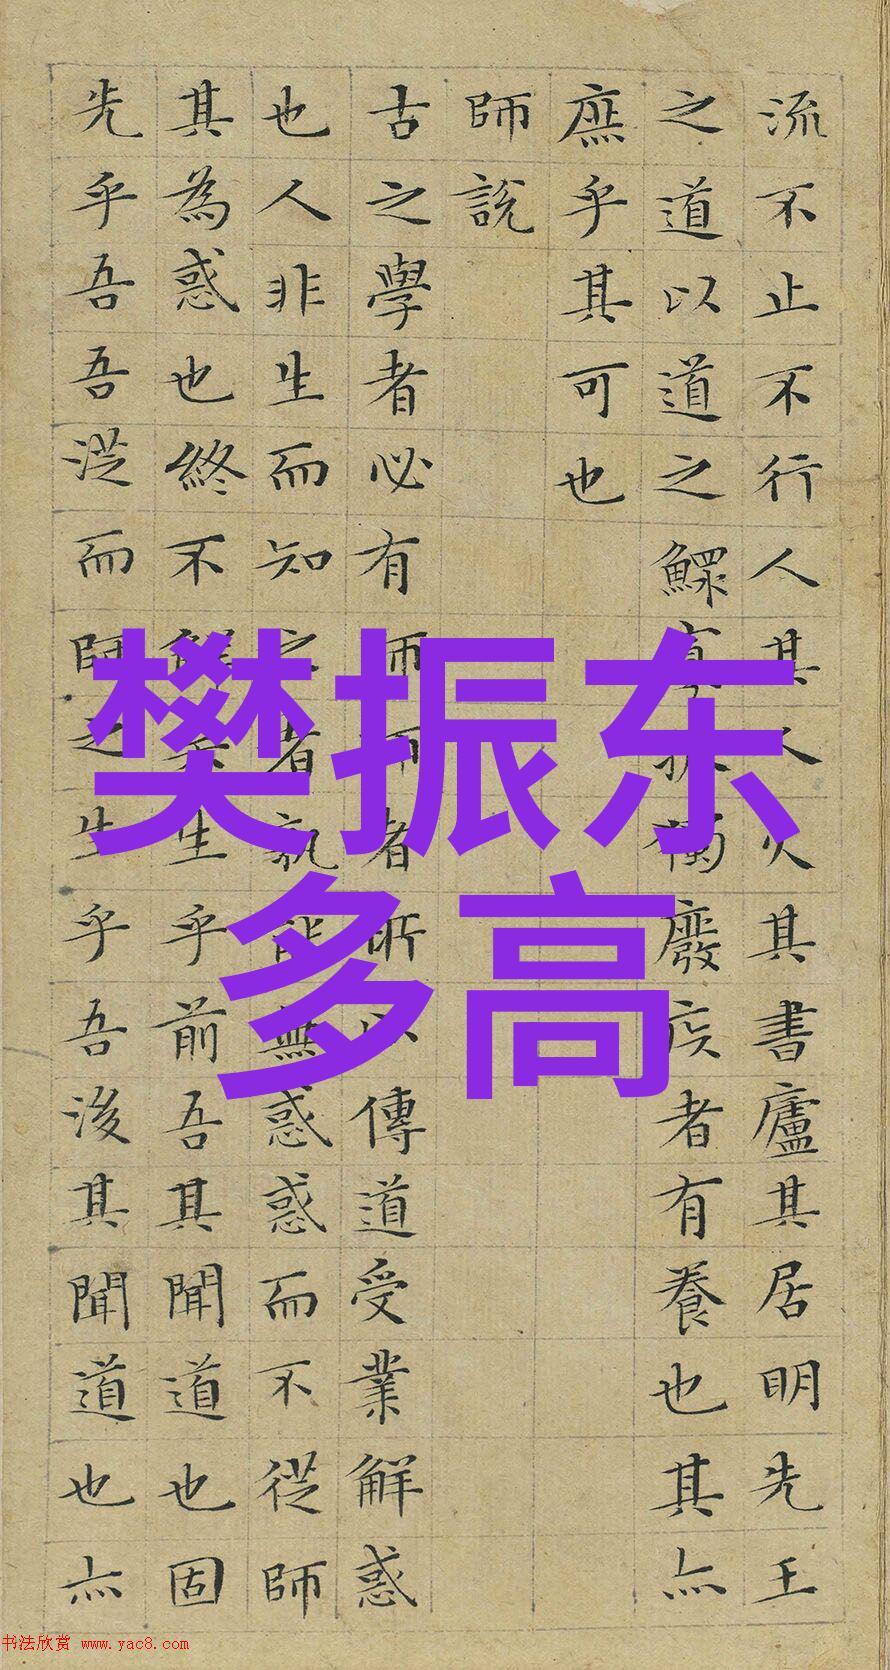 流不止不行人其人火其書廬其居明先王
之道以道之鰥寡孤獨廢疾者有養也其亦
庶乎其可也
師說
古之學者必有師師者所以傳道受業解惑
也人非生而知之者孰能無惑惑而不從師
其為惑也終不解矣生乎前吾其聞道也固
先乎吾吾從而師之生乎吾後其聞道也亦
樊振东
多高
书法欣赏 www.yac8.com